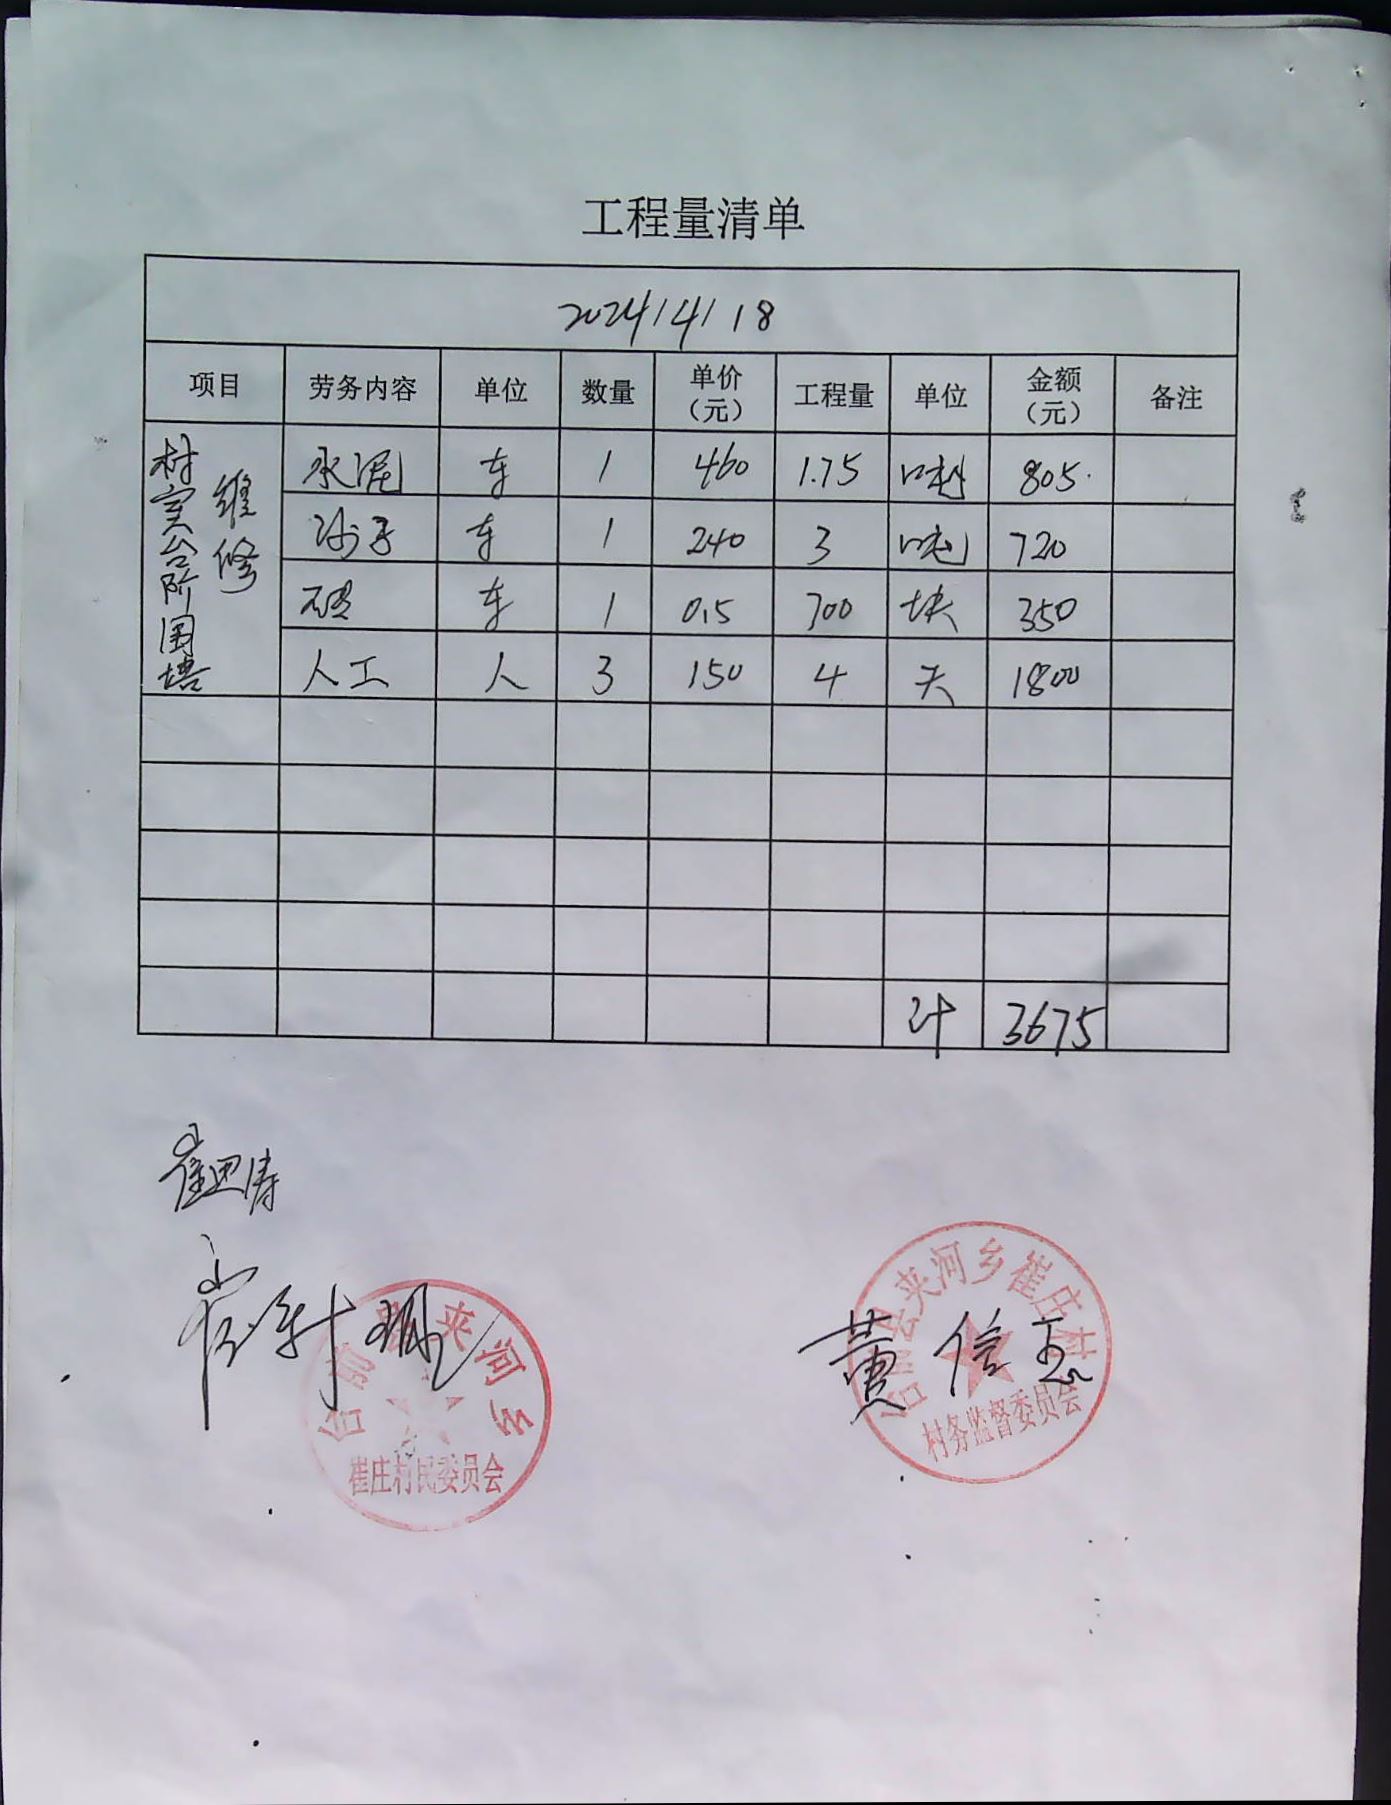 工程量清单
2024/4/18
项目 劳务内容 单位 数量 单价（元） 工程量 单位 金额（元） 备注
村室台阶围墙维修
水泥 车 1 460 1.75 吨 805
沙子 车 1 240 3 吨 720
砖 车 1 0.5 700 块 350
人工 人 3 150 4 天 1800
计 3675
崔思涛
台前县夹河乡
崔庄村民委员会
台前县夹河乡崔庄村
村务监督委员会